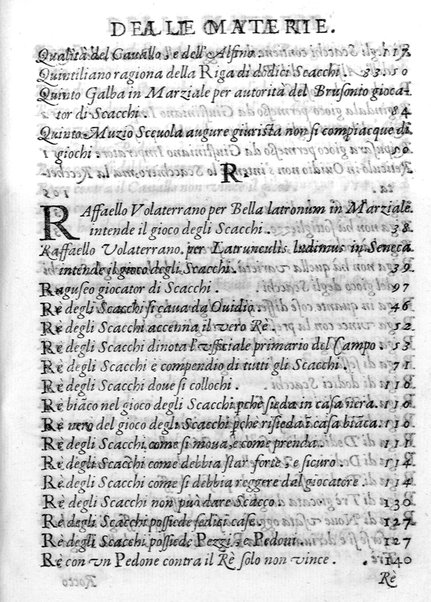 DELLE MATERIE.
Qualità del Cauallo, e dell'Alfino. 117
Quintiliano ragiona della Riga di dodici Scacchi. 33. 50
Quinto Galba in Marziale per autorità del Brusonio gioca-
tor di Scacchi. 84
Quinto Muzio Sceuola augure giurista non si compiacque di
giochi. 50
R
RAffaello Volaterrano per Bella latronum in Marziale.
intende il gioco degli Scacchi. 38
Raffaello Volaterrano. per Latrunculis ludimus in Seneca
intende il gioco degli Scacchi. 39
Raguseo giocator di Scacchi. 97
Rè degli Scacchi si caua da Ouidio. 46
Rè degli Scacchi accenna il vero Rè. 52
Rè degli Scacchi dinota l'vfficiale primario del Campo. 58
Rè degli Scacchi è compendio di tutti gli Scacchi. 71
Rè degli Scacchi doue si collochi. 110
Rè biāco nel gioco degli Scacchi pchè sieda in casa nera. 110
Rè nero del gioco degli Scacchi pchè risieda i casa biāca. 110
Rè degli Scacchi come si moua, e come prenda. 114
Rè degli Scacchi come debbia star forte, e sicuro. 114
Rè degli Scacchi come si debbia reggere dal giocatore. 114
Rè degli Scacchi non può dare Scacco. 130
Rè degli Scacchi possiede sedici case. 127
Rè degli Scacchi possiede Pezzi, e Pedoni. 127
Rè con vn Pedone contra il Rè solo non vince. 140
Rè